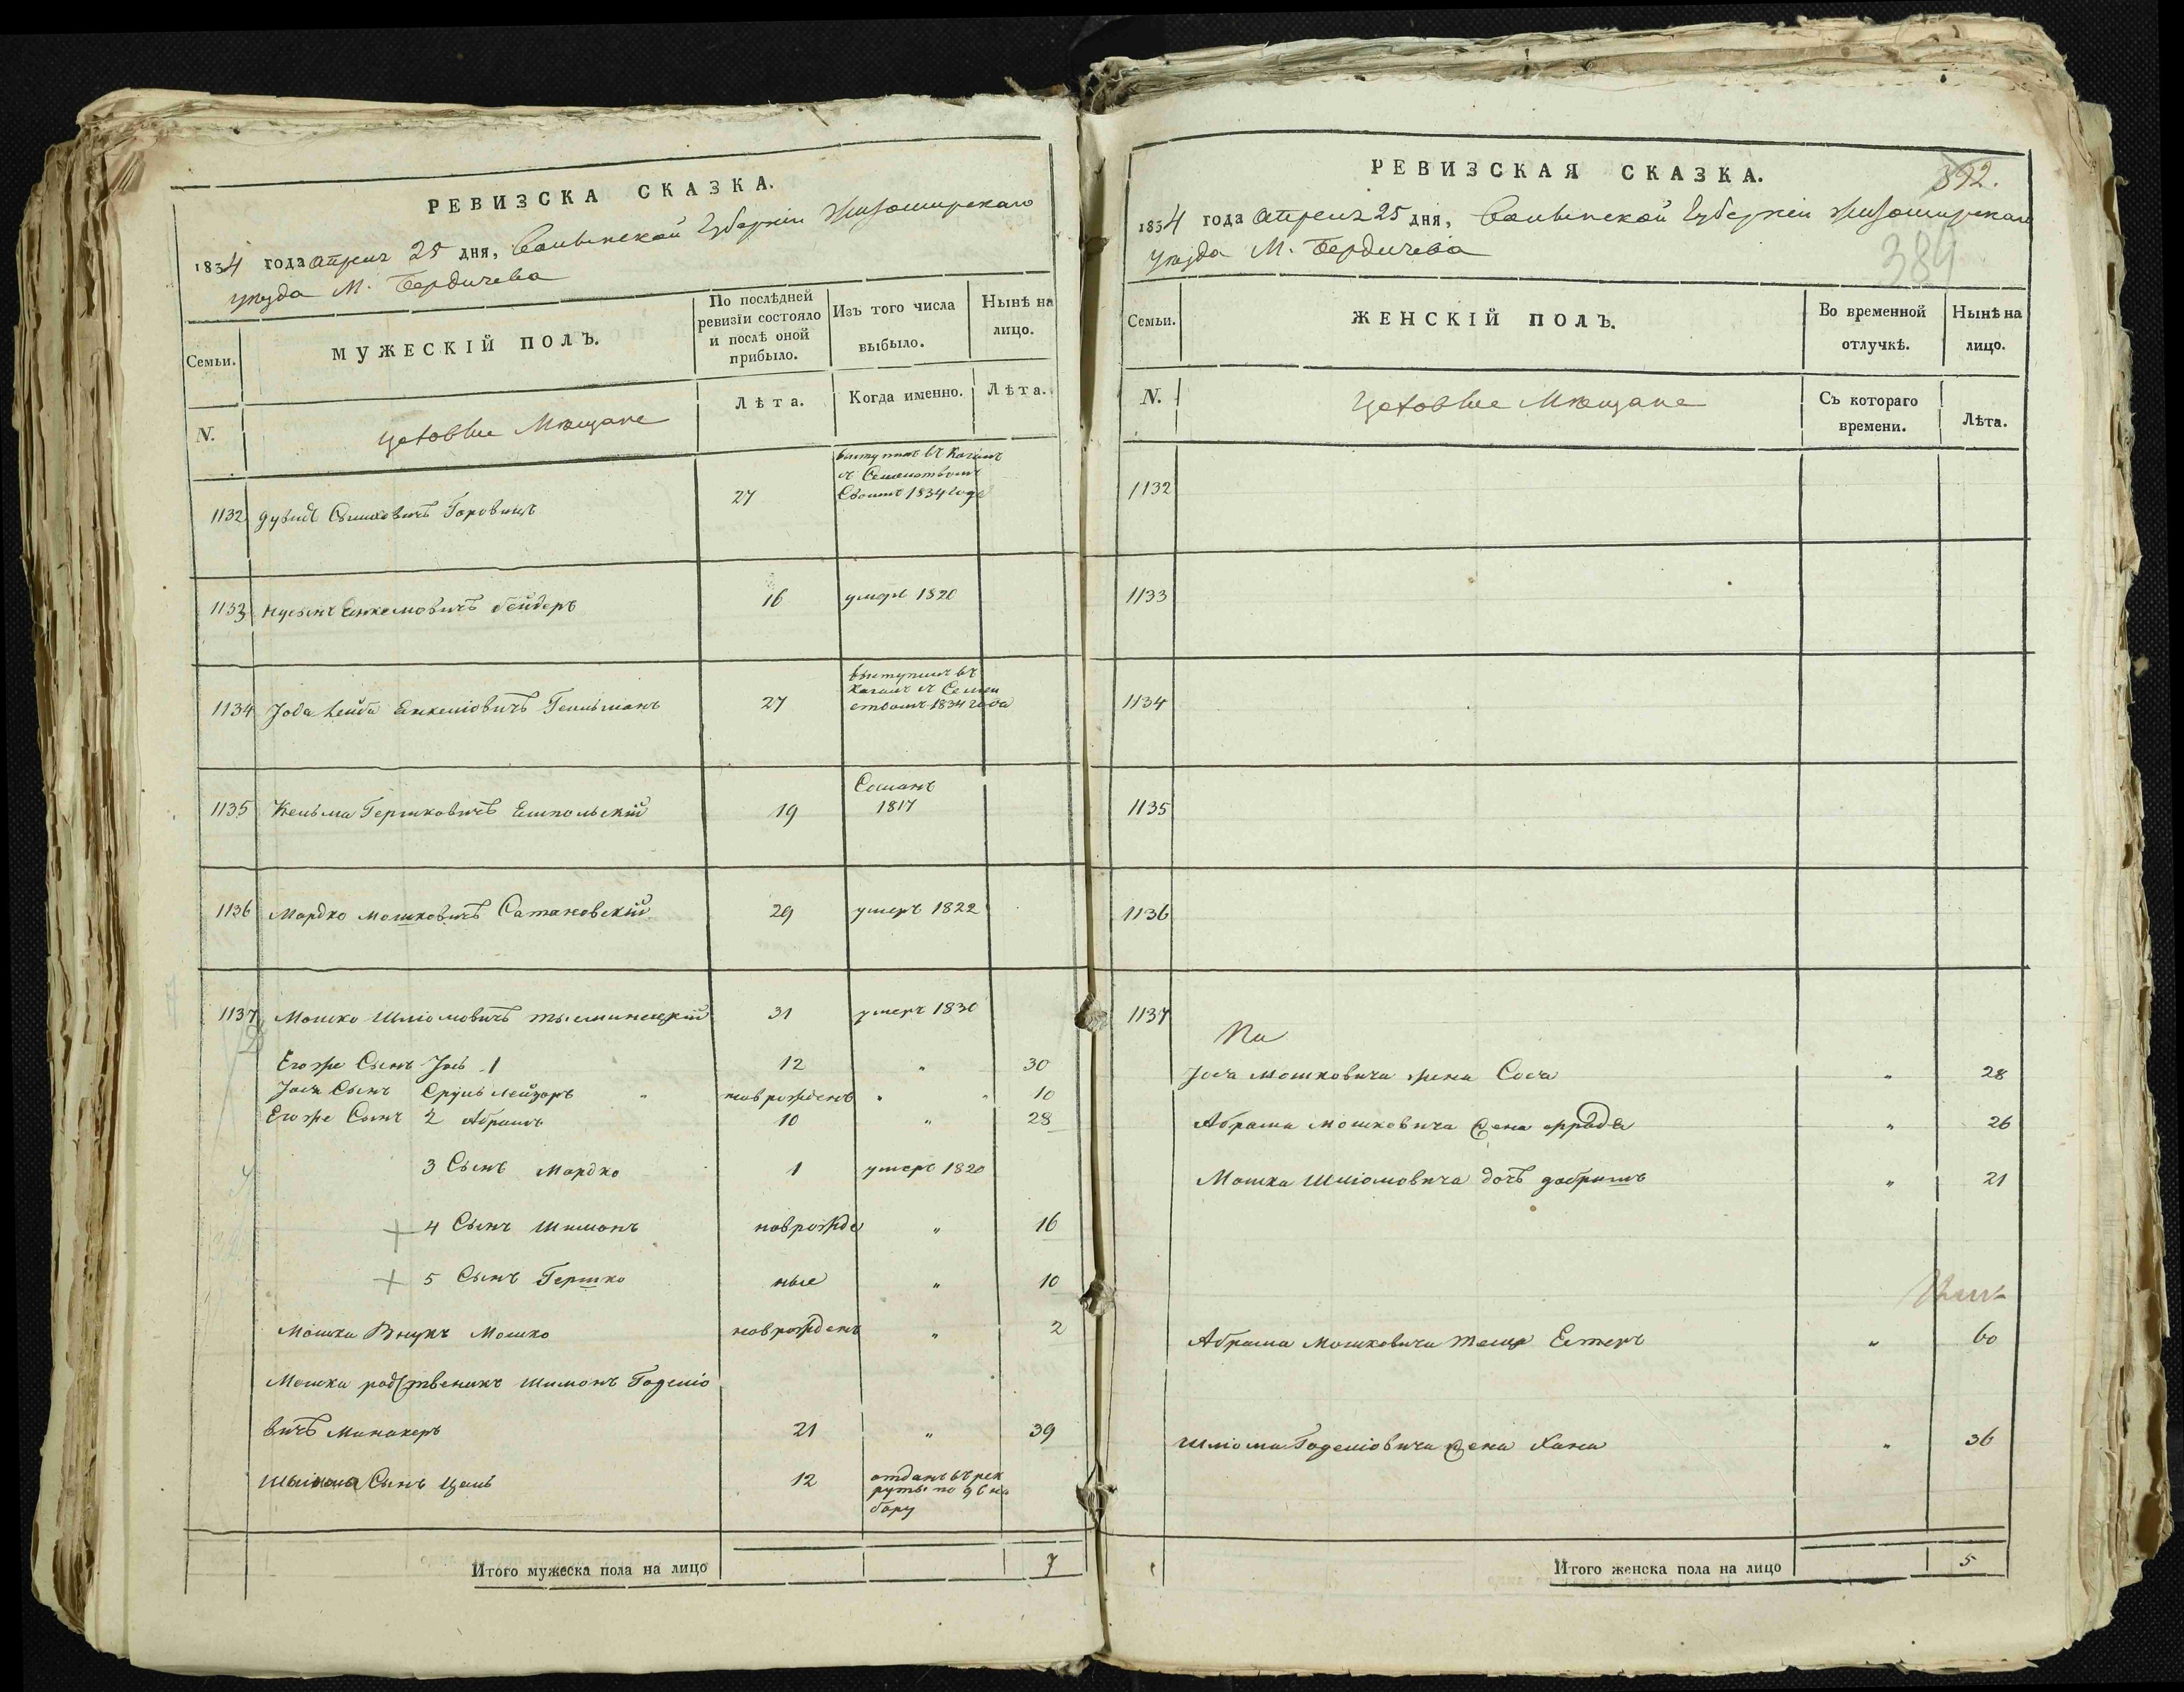 РЕВИЗСКА СКАЗКА.
1834 года Апреля 25 дня, Волынской Губерніи Житомирскаго
уезда М. Бердичева
Семьи.
МУЖЕСКІЙ ПОЛЪ.
По послѣдней ревизіи состояло и послѣ оной прибыло.
Изъ того числа выбыло.
Нынѣ на лицо.
N.
цеховые Мещане
Лѣта.
Когда именно.
Лѣта.
1132 Дувидъ Горовицъ 27 выступилъ въ Кагалъ
съ Семействомъ
Своимъ 1834 года
1133 Нусынъ Бейдеръ 16 умеръ 1820
1134 Лейба Гельманъ 27 выступилъ въ
Кагалъ съ Семей
ствомъ 1834 года
1135 Кельма Гершковичъ Емпольскій 19 Сосланъ
1817
1136 Мордко Мошковичъ Сатановскій 29 умеръ 1822
1137 Мошко Шліомовичъ 31 умеръ 1830
Его же Сынъ Іось 1 12 " 30
Іося Сынъ Сруль Лейзоръ " новрожденъ " " 10
Его же Сынъ 2 Абрамъ 10 " 28
3 Сынъ Мордко 1 умеръ 1820
4 Сынъ Шимонъ новрожде " 16
5 Сынъ Гершко ные " 10
Мошка Внукъ Мошко новрожденъ " 2
Мошка родственикъ Шимонъ Годеліо
вичъ Минакеръ 21 " 39
Сынъ Цаль 12 отданъ въ рек
руты по 96 на
бору
Итого мужеска пола на лицо 7
РЕВИЗСКАЯ СКАЗКА.
392.
384
1834 года Апреля 25 дня, Волынской Губерніи Житомирскаго
уезда М. Бердичева
Семьи.
ЖЕНСКІЙ ПОЛЪ.
Во временной отлучкѣ.
Нынѣ на лицо.
N.
Цеховые Мещане
Съ котораго времени.
Лѣта.
1132
1133
1134
1135
1136
1137
Іося Мошковича жена Сося " 28
Абрама Мошковича жена " 26
Мошка Шліомовича дочъ добришъ " 21
Абрама Мошковича теща Естеръ " 60
Шліома Годеліовича жена Хана " 36
Итого женска пола на лицо 5